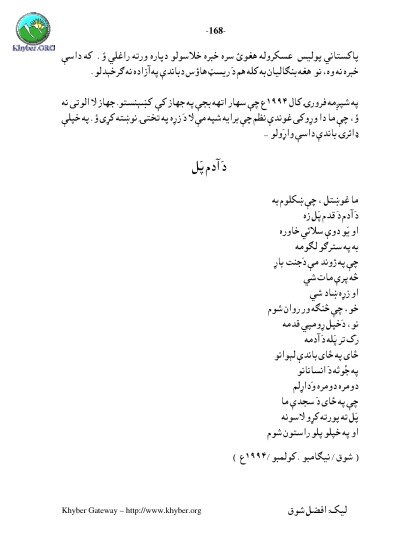 -168-
Khyber.ORG
پاکستاني پوليس عسکروله هغوئ سره خبره خلاسولو دپاره ورته راغلي ؤ. که داسې
خبره نه وه، نو هغه بنګاليان به کله هم دَ ريسټ هاؤس دباندې په آزاده نه ګرځېدلو.
په شپږمه فرورۍ کال ۱۹۹۴ع چې سهار اتهه بجې په جهاز کې کښېنستو. جهاز لا الوتی نه
ؤ، چې ما دا وړوکی غوندې نظم چې برايه شپه مې لا دَ زړه په تختۍ نوشته کړی ؤ. په خپلې
ډائرۍ باندې داسې واړولو –
دَ آدم پَل
ما غوښتل، چې ښکلوم به
دَ آدم دَ قدم پَل زه
او يَو دوې سلائي خاوره
به په سترګو لګومه
چې په ژوند مې دَ جنت باړ
څه پرې مات شي
او زړه ښاد شي
خو، چې څنګه ور روان شوم
نو، دَ خپل ړومبي قدمه
رک تر پَله دَ آدمه
ځای په ځای باندې لېوانو
په جُوثه دَ انسانانو
دومره دومره وَ داړلم
چې په ځای دَ سجدې ما
پَل ته پورته کړو لاسونه
او په خپلو پلو راستون شوم
( شوق / نيګامبو . کولمبو / ۱۹۹۴ع )
Khyber Gateway – http://www.khyber.org
ليک: افضل شوق